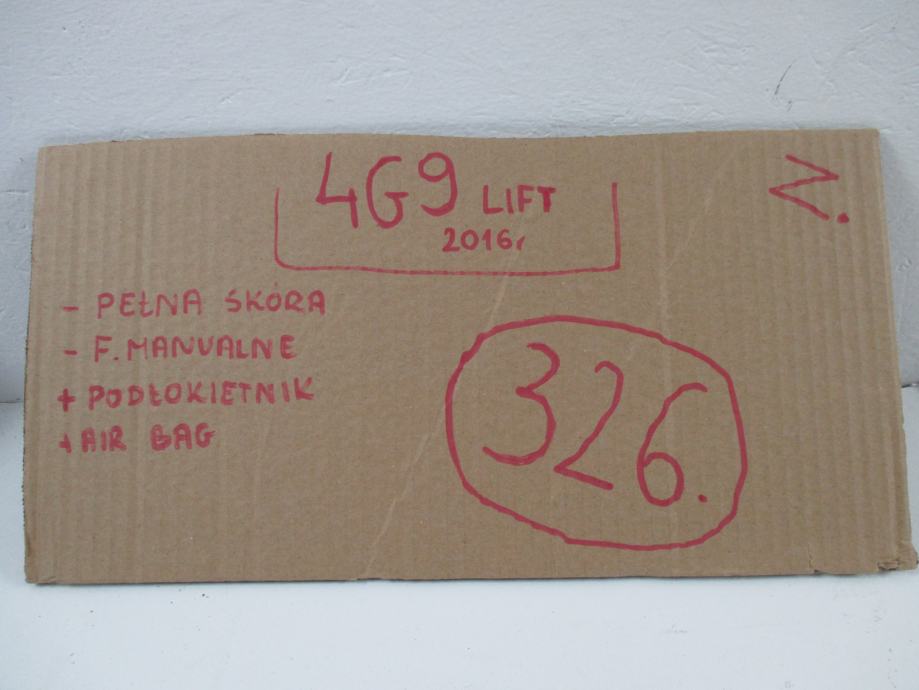 4G9 LIFT
2016r
Z.
- PEŁNA SKÓRA
- F. MANUALNE
+ PODŁOKIETNIK
+ AIR BAG
326.